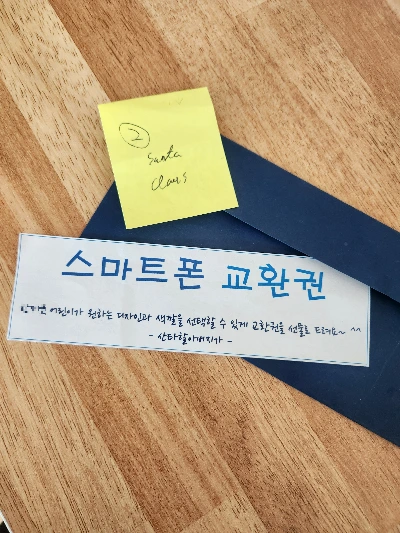 2
Santa
Claus
스마트폰 교환권
어린이가 원하는 디자인과 색깔을 선택할 수 있게 교환권을 선물로 드려요~ ^^
- 산타할아버지가 -